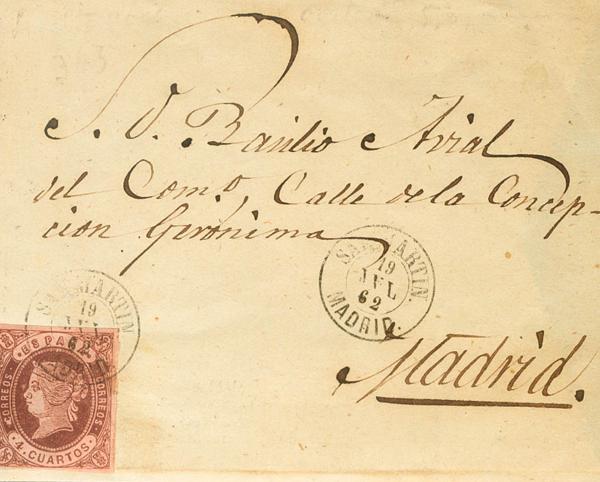 S. D. Basilio Avial
del Com.º, Calle de la Concep-
cion Gerónima
Madrid.
SAN MARTIN.
19
JUL
62
MADRID.
SAN MARTIN
19
JUL
62
ESPAÑA
CORREOS
CORREOS
4 CUARTOS